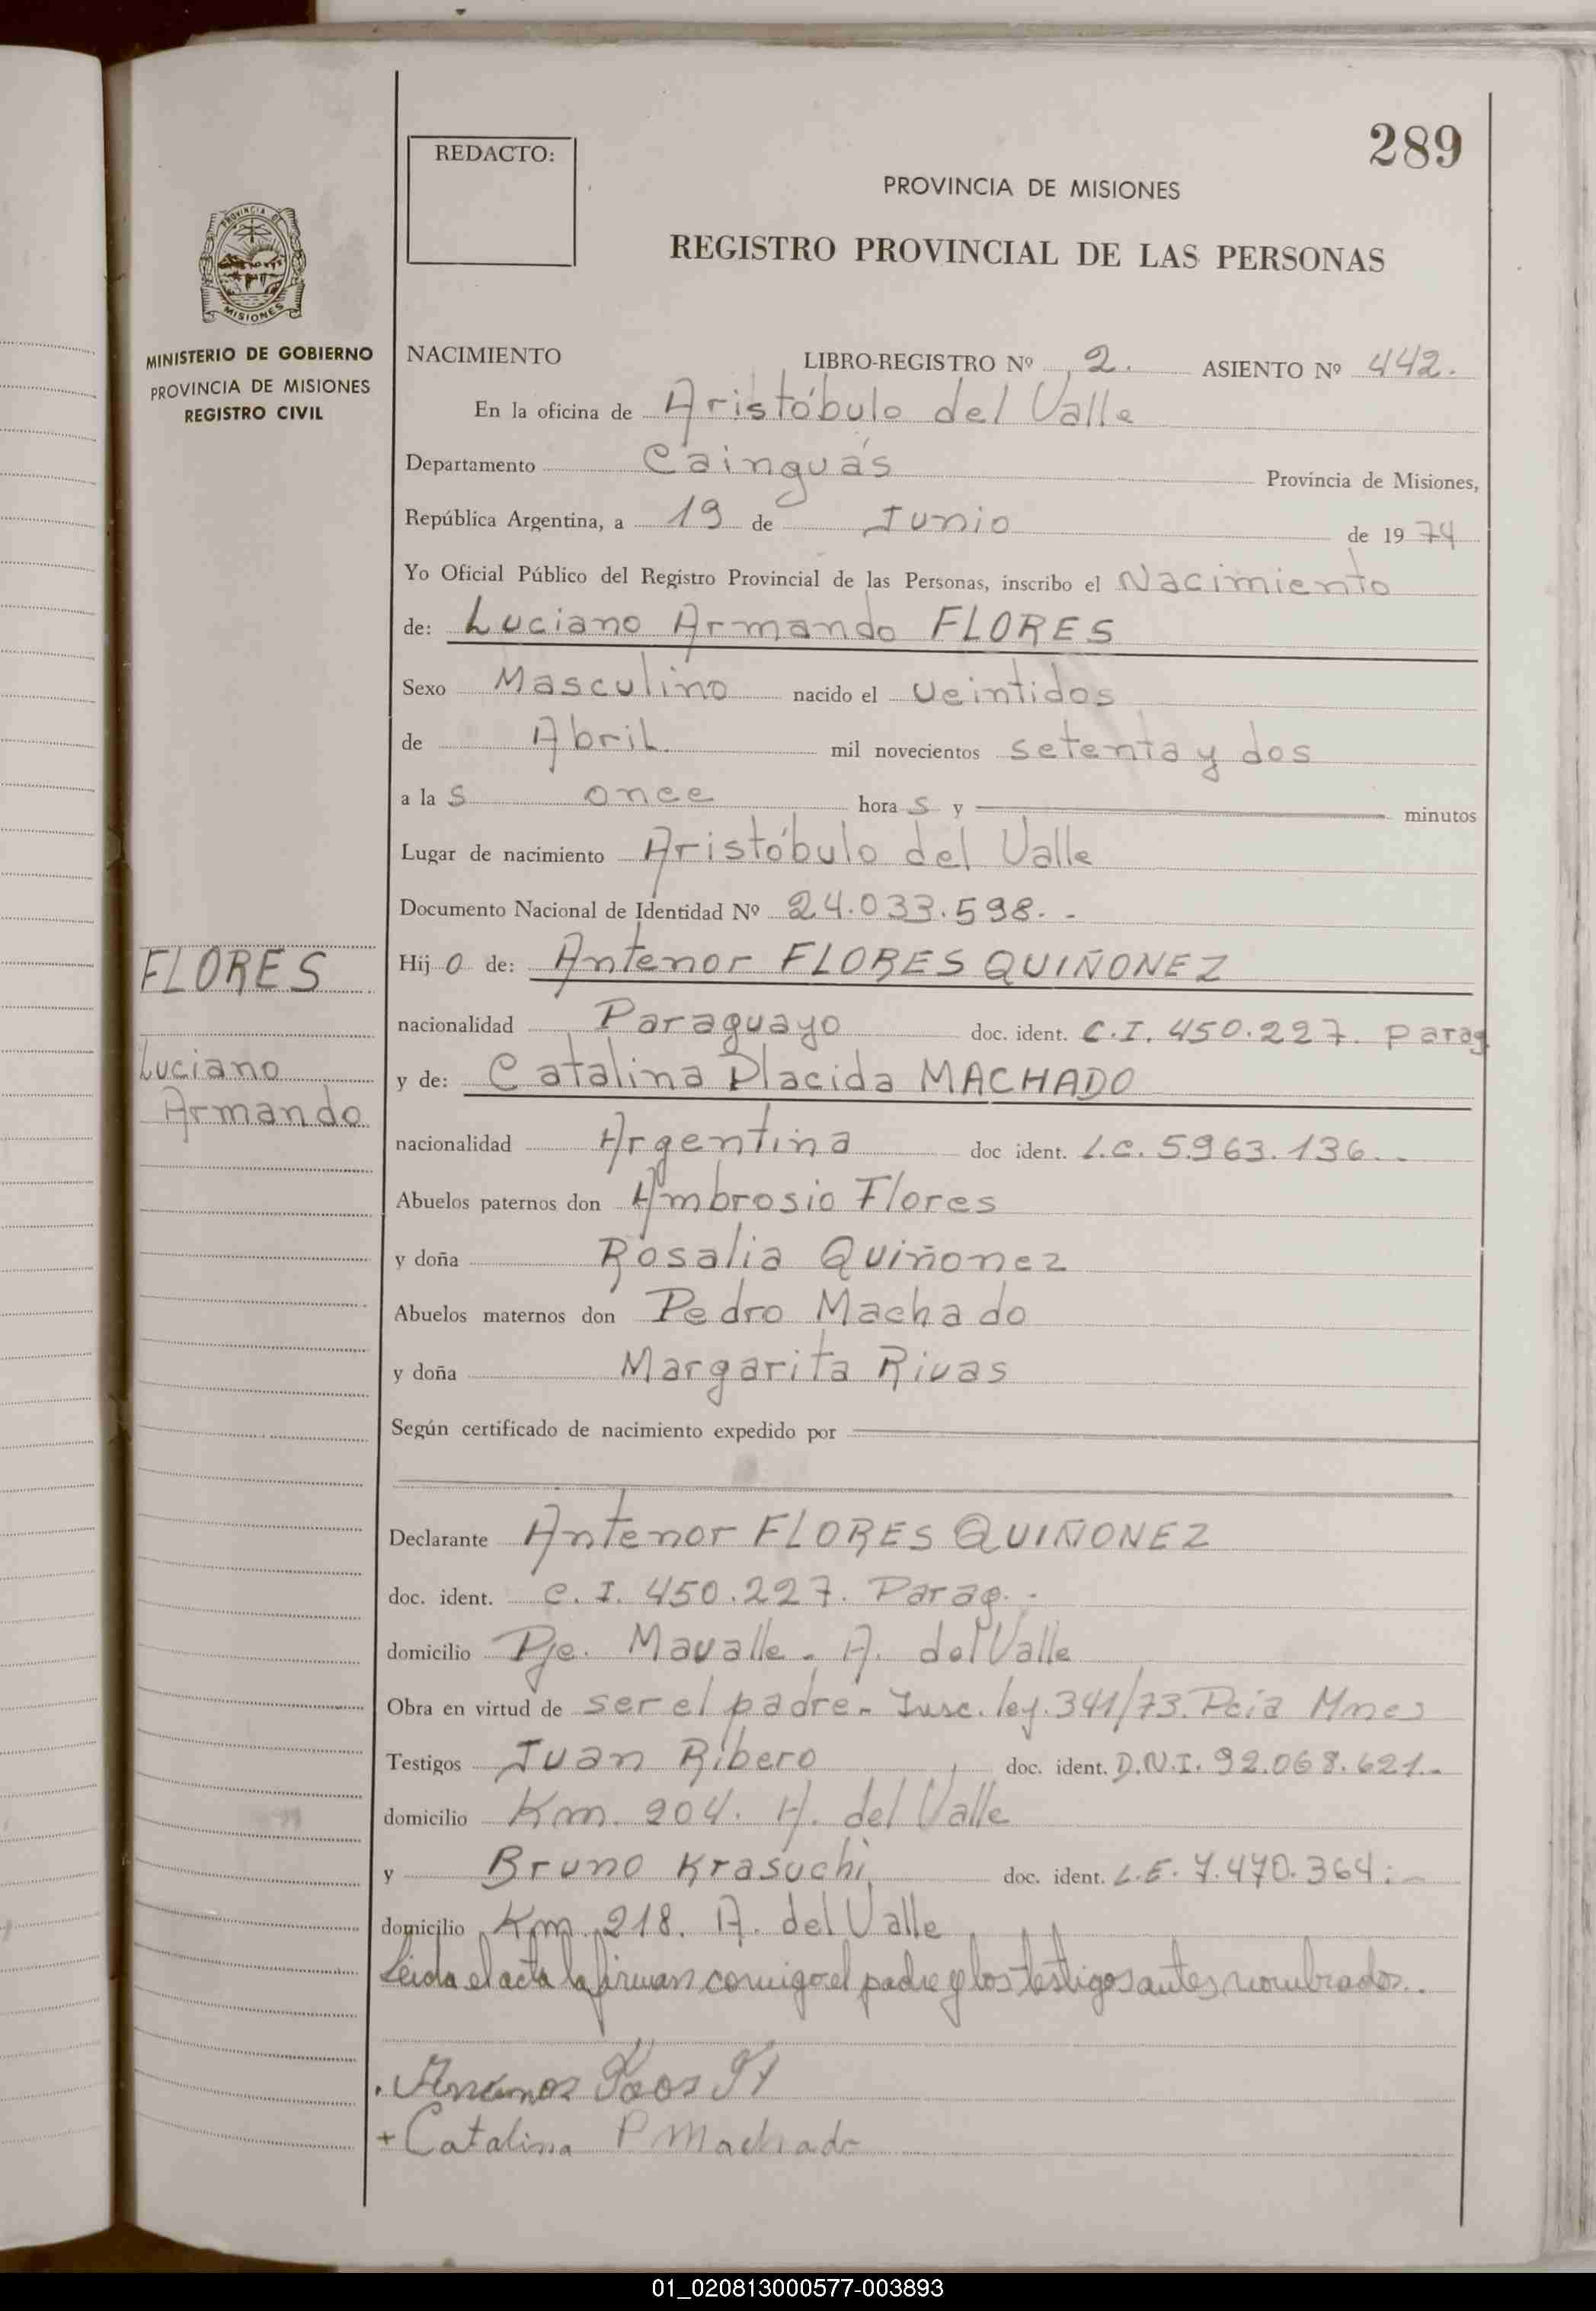 289
REDACTO:
PROVINCIA DE MISIONES
REGISTRO PROVINCIAL DE LAS PERSONAS
PROVINCIA DE
MISIONES
MINISTERIO DE GOBIERNO
PROVINCIA DE MISIONES
REGISTRO CIVIL
NACIMIENTO LIBRO-REGISTRO Nº 2. ASIENTO Nº 442.
En la oficina de Aristóbulo del Valle
Departamento Cainguás Provincia de Misiones,
República Argentina, a 19 de Junio de 1974
Yo Oficial Público del Registro Provincial de las Personas, inscribo el Nacimiento
de: Luciano Armando FLORES
Sexo Masculino nacido el veintidos
de Abril mil novecientos setenta y dos
a la s once hora s y minutos
Lugar de nacimiento Aristóbulo del Valle
Documento Nacional de Identidad Nº 24.033.598. -
FLORES
Luciano
Armando
Hij o de: Antenor FLORES QUIÑONEZ
nacionalidad Paraguayo doc. ident. C.I. 450.227. parag
y de: Catalina Placida MACHADO
nacionalidad Argentina doc ident. L.C. 5.963.136. -
Abuelos paternos don Ambrosio Flores
y doña Rosalia Quiñonez
Abuelos maternos don Pedro Machado
y doña Margarita Rivas
Según certificado de nacimiento expedido por
Declarante Antenor FLORES QUIÑONEZ
doc. ident. C.I. 450.227. Parag. -
domicilio Pje. Mavalle. A. del Valle
Obra en virtud de ser el padre - Insc. ley. 341/73. Pcia Mnes
Testigos Juan Ribero doc. ident. D.N.I. 92.068.621. -
domicilio Km. 204. A. del Valle
y Bruno Krasuchi doc. ident. L.E. 7.470.364: -
domicilio Km. 218. A. del Valle
Leida el acta la firman conmigo el padre y los testigos antes nombrados..
+ Catalina P Machado
01_020813000577-003893